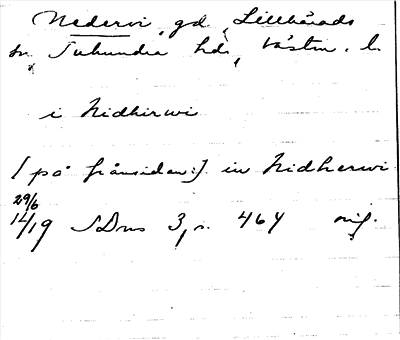 Nedervi, gd, Lillhärads
sn, Tuhundra hd, Västm. l.
i Nidhirwi
[på frånsidan:] in Nidherwi
29/6
14/19 SDns 3, s. 464 orig.